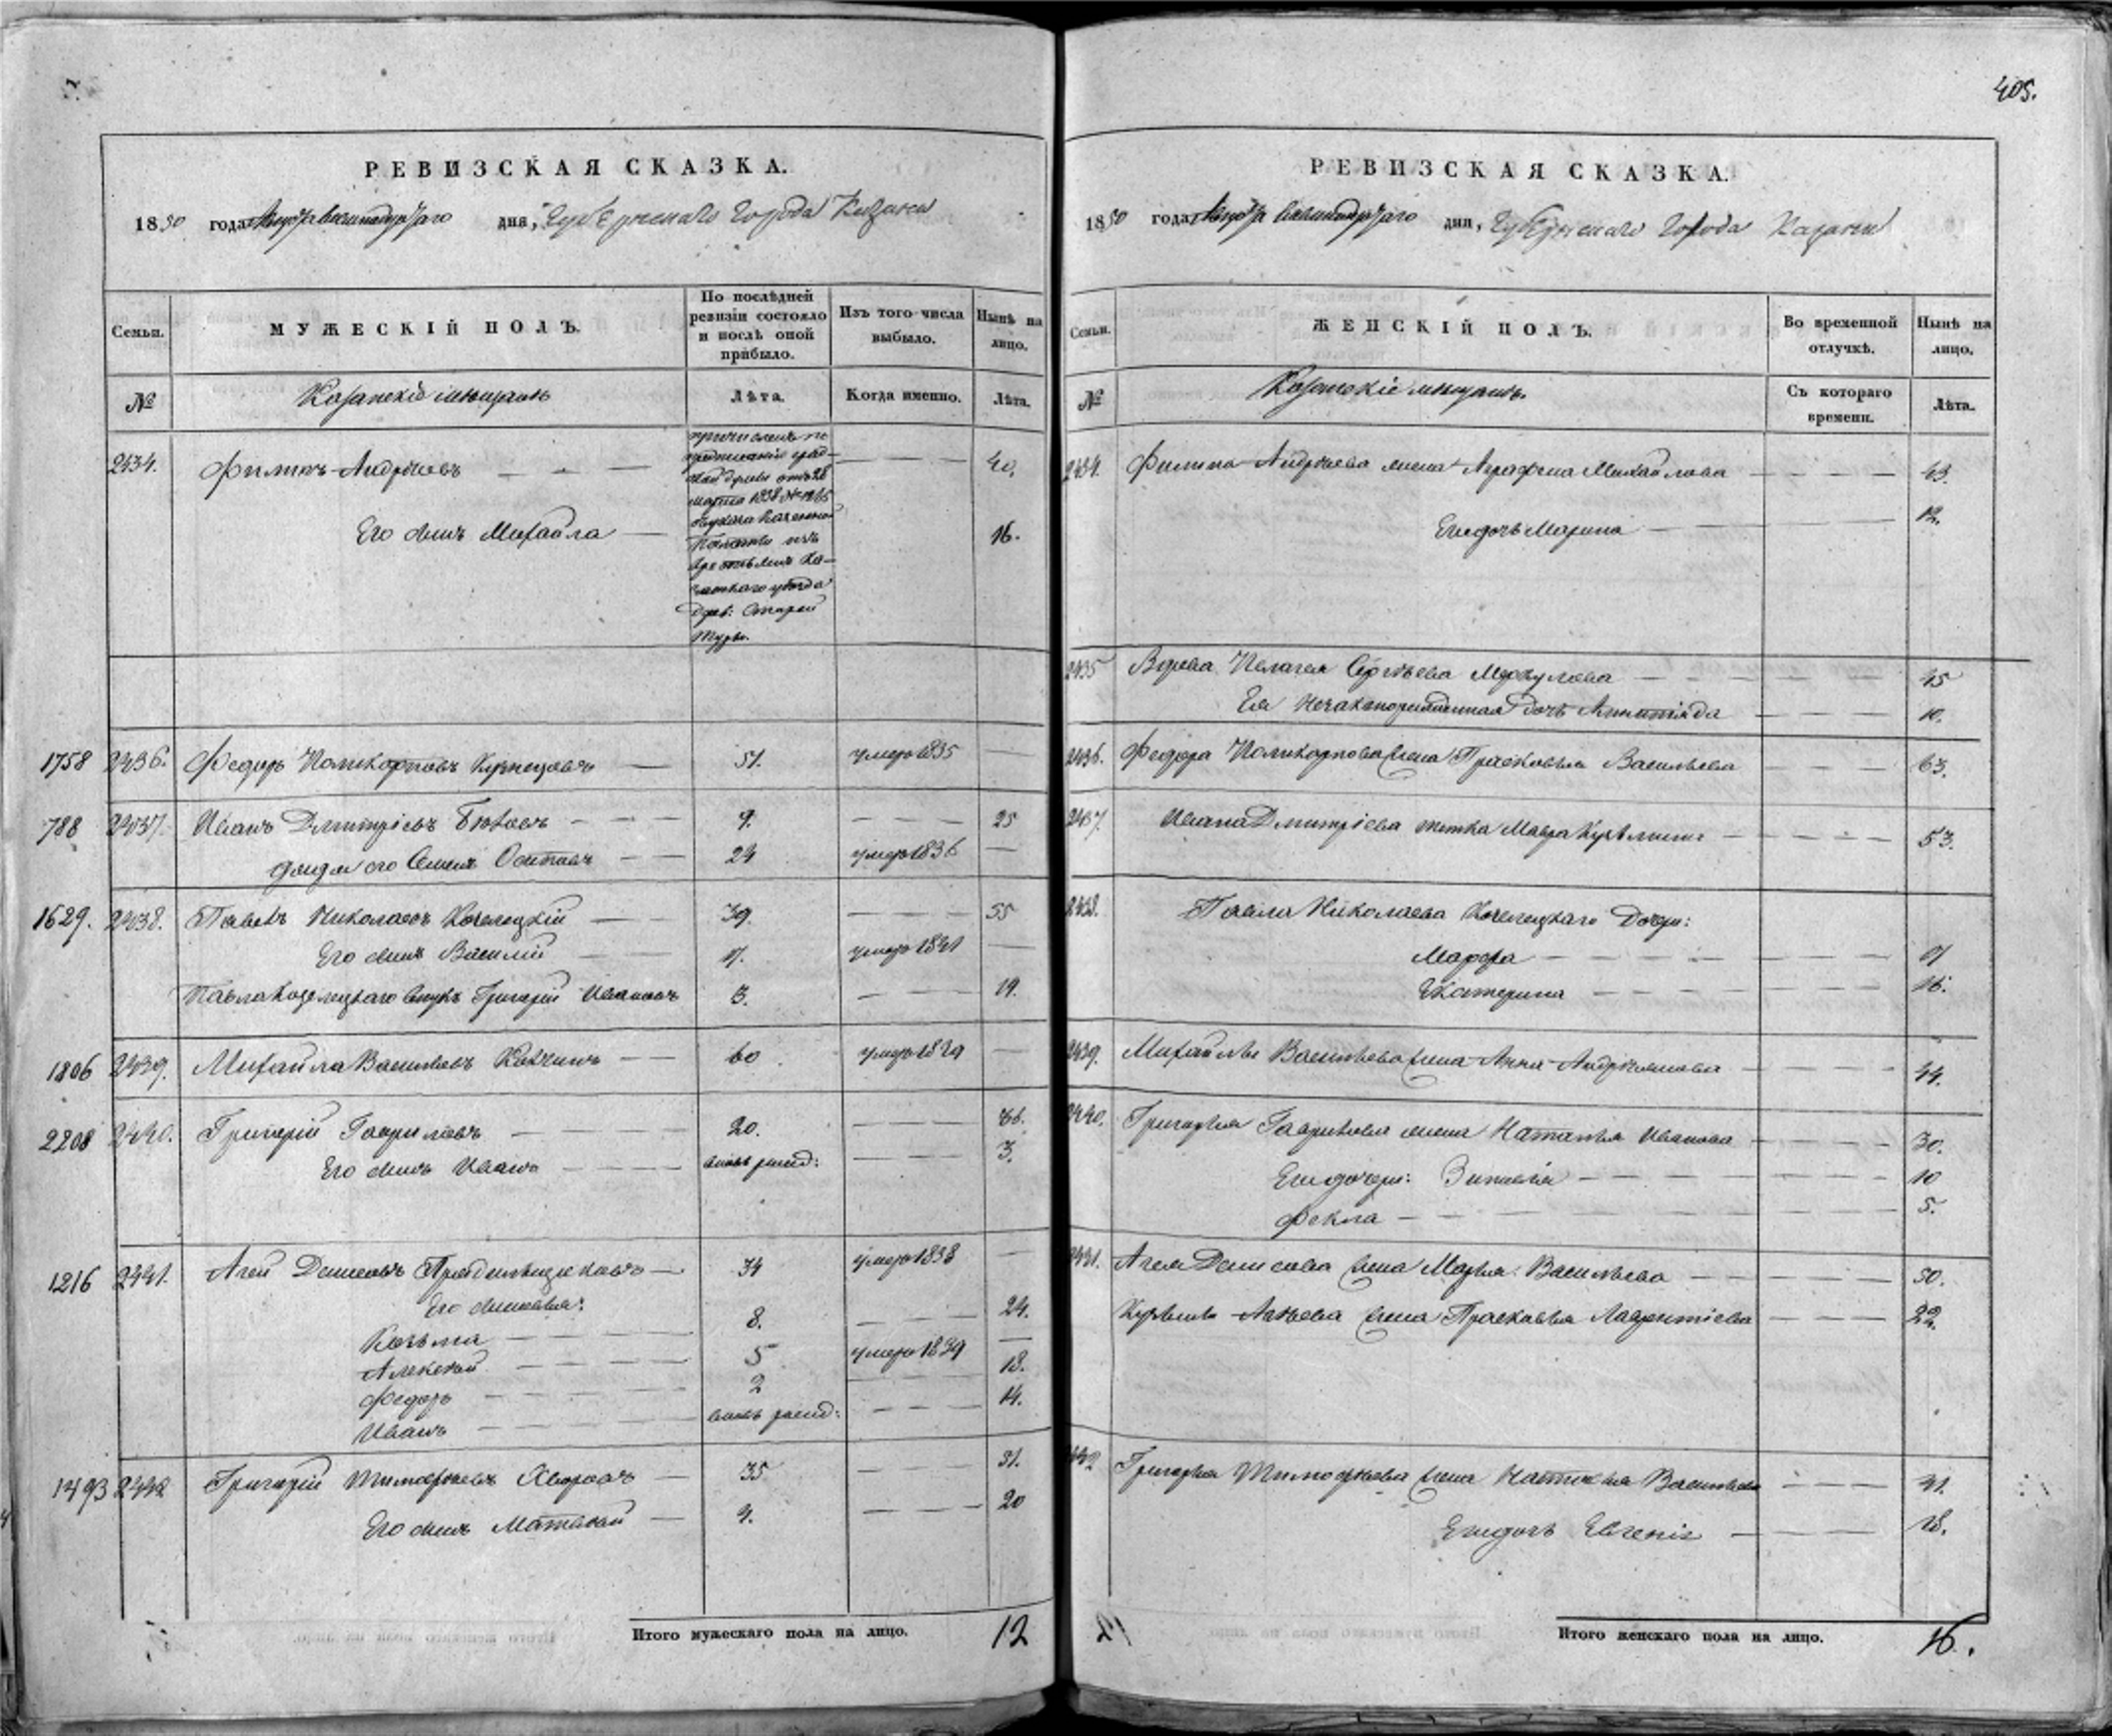 405.
РЕВИЗСКАЯ СКАЗКА.
1850 года дня, Губернскаго Города Казани
Семьи. МУЖЕСКІЙ ПОЛЪ. По послѣдней ревизіи состояло и послѣ оной прибыло. Изъ того числа выбыло. Нынѣ на лицо.
№ Казанскіе мещанъ Лѣта. Когда именно. Лѣта.
2434. Филипъ Андрѣевъ 40.
Его сынъ Михайла 16.
причисленъ по
предписанію град-
ской думы отъ 28
марта 1838 №
Казенной
Палаты изъ
крестьянъ Ка-
занскаго уѣзда
Дер: Старой
Туры.
1758 2436. Федоръ Поликарповъ Кузнецовъ 51. умеръ 1835
788 2437. Иванъ Дмитріевъ 9. 25
дядя его Семенъ Осиповъ 24 умеръ 1836
1629. 2438. Павелъ Николаевъ Козелецкій 39. 55
Его сынъ Василій умеръ 1841
Павла Козелецкаго внукъ Григорій Ивановъ 3. 19.
1806 2439. Михайла Васильевъ 60 умеръ 1839
2208 2440. Григорій Гавриловъ 20. 36.
Его сынъ Иванъ вновь рожд: 3.
1216 2441. Агей Денисовъ 34 умеръ 1838
Его сыновья:
Козьма 8. 24.
Алексей 5 умеръ 1839
Федоръ 2 18.
Иванъ вновь рожд: 14.
1493 2442 Григорій Тимофѣевъ 35 51.
Его сынъ Матвей 4. 20
Итого мужескаго пола на лицо. 12
РЕВИЗСКАЯ СКАЗКА.
1850 года дня, Губернскаго Города Казани
Семьи. ЖЕНСКІЙ ПОЛЪ. Во временной отлучкѣ. Нынѣ на лицо.
№ Казанскіе мещанъ. Съ котораго времени. Лѣта.
2434. Филипа Андрѣева жена Аграфена Михайлова 43.
Его дочь Марина 12.
2435 Вдова Пелагея Сергѣева Меркулова 45
Ея незаконорожденная дочь 10.
2436. Федора Поликарпова жена Прасковья Васильева 63.
2437. Ивана Дмитріева тетка Мавра Кузьмина 53.
2438. Павла Николаева Козелецкаго Дочери:
Марфа
Екатерина 16.
2439. Михайлы Васильева жена Анна Андреянова 44.
2440. Григорья Гаврилова жена Наталья Иванова 30.
Его дочери: Зиновія 10
Фекла 5.
2441. Агея Денисова жена Марья Васильева 50.
Кузьмы Агѣева жена Прасковья Лаврентіева 22.
2442 Григорья Тимофѣева жена Настасья Васильева 41.
Его дочь Евгенія 18.
Итого женскаго пола на лицо. 16.